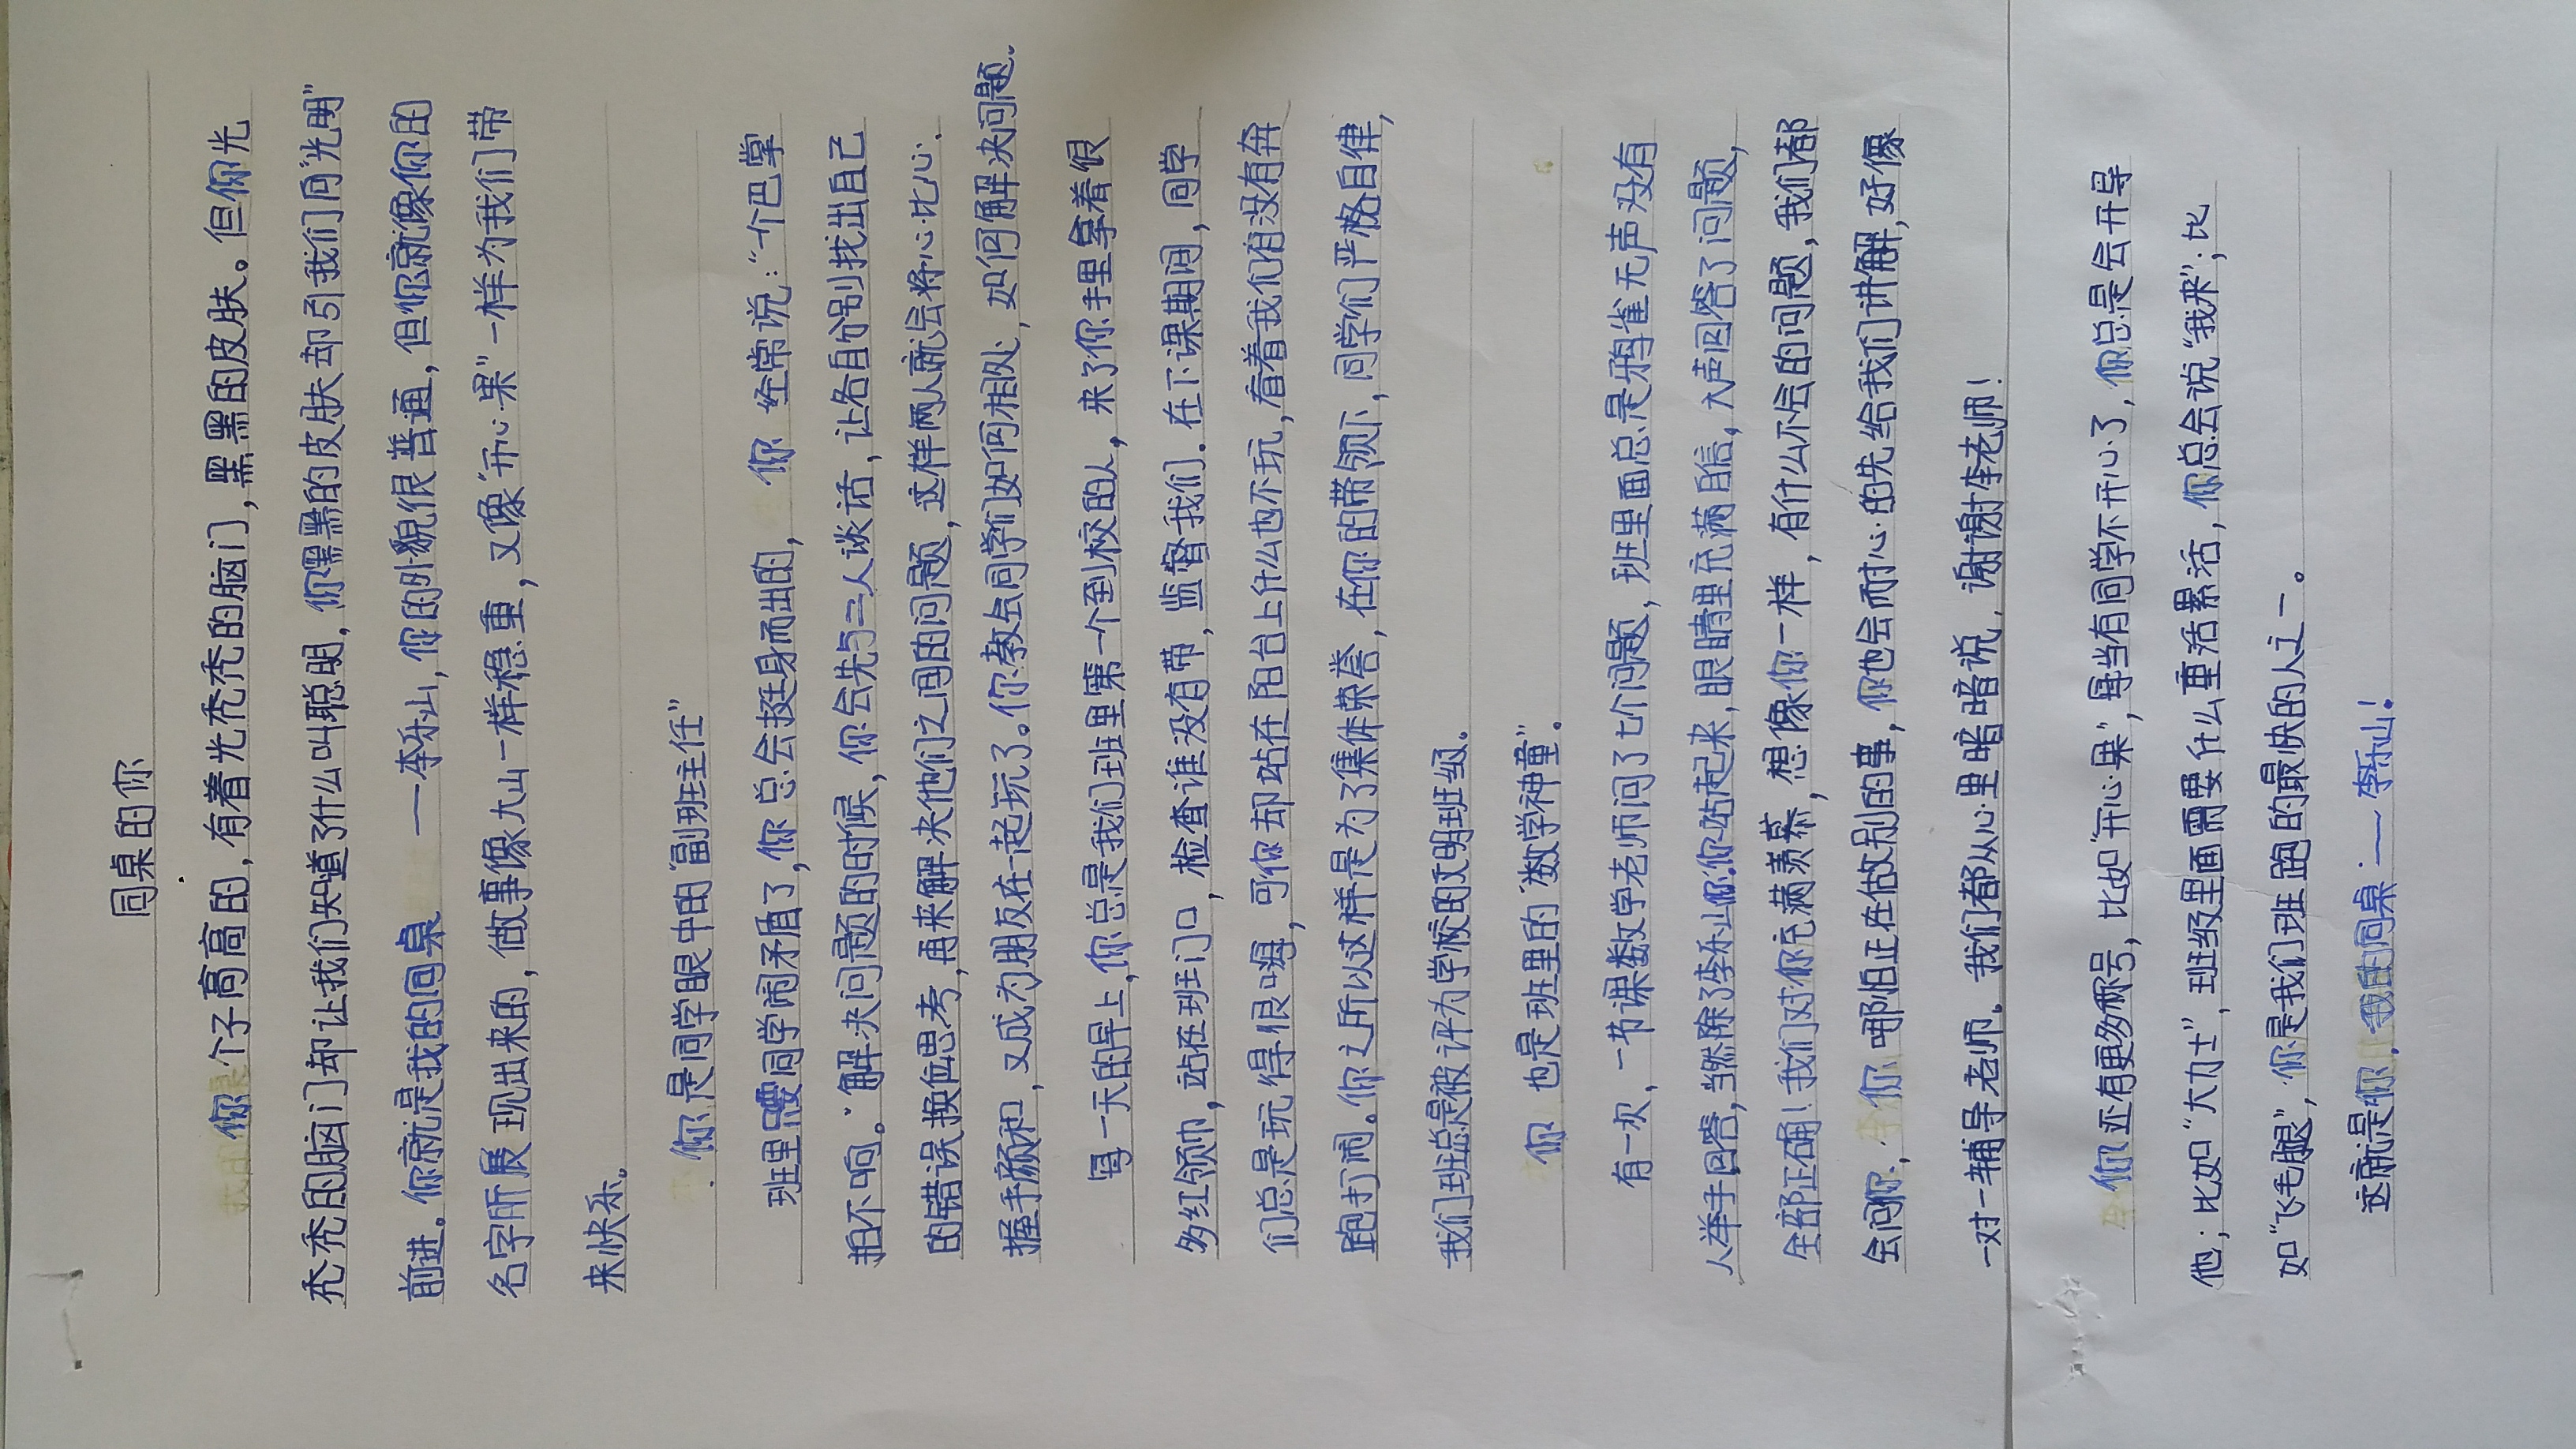 同桌的你
你个子高高的，有着光秃秃的脑门，黑黑的皮肤。但你光
秃秃的脑门却让我们知道了什么叫聪明，你黑黑的皮肤却引我们向“光明”
前进。你就是我的同桌——李乐山，你的外貌很普通，但你就像你的
名字所展现出来的，做事像大山一样稳重，又像“开心果”一样为我们带
来快乐。
你是同学眼中的“副班主任”
班里只要同学闹矛盾了，你总会挺身而出的，你经常说：“一个巴掌
拍不响。”解决问题的时候，你会先与二人谈话，让各自分别找出自己
的错误换位思考，再来解决他们之间的问题，这样两人就会将心比心．
握手颜和，又成为朋友在一起玩了。你教会同学们如何相处，如何解决问题．
每一天的早上，你总是我们班里第一个到校的人，来了你手里拿着很
多红领巾，站在班门口，检查谁没有带，监督我们．在下课期间，同学
们总是玩得很嗨，可你却站在阳台上什么也不玩，看着我们有没有奔
跑打闹。你之所以这样是为了集体荣誉，在你的带领下，同学们严格自律，
我们班总是被评为学校的文明班级。
你也是班里的“数学神童”．
有一次，一节课数学老师问了七个问题，班里面总是鸦雀无声没有
人举手回答，当然除了李乐山你．你站起来，眼睛里充满自信，大声回答了问题，
全部正确！我们对你充满羡慕，想像你一样，有什么不会的问题，我们都
会问你，你哪怕正在做别的事，你也会耐心的先给我们讲解，好像
一对一辅导老师．我们都从心里暗暗说，谢谢李老师！
你还有更多称号，比如“开心果”，每当有同学不开心了，你总是会开导
他；比如“大力士”，班级里面需要什么重活累活，你总会说“我来”；比
如“飞毛腿”，你是我们班跑的最快的人之一。
这就是你，我的同桌——李乐山！